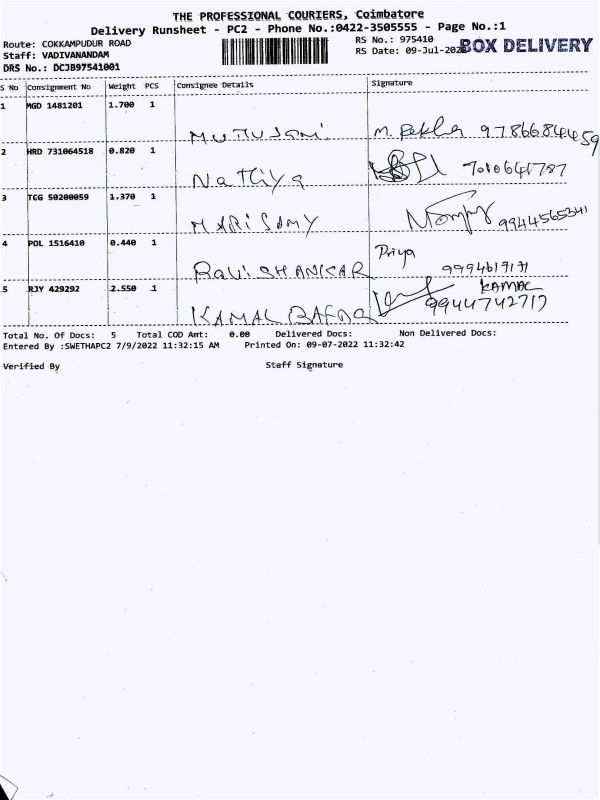 THE PROFESSIONAL COURIERS, Coimbatore
Delivery Runsheet - PC2 - Phone No.:0422-3505555 - Page No.:1
Route: COKKAMPUDUR ROAD
Staff: VADIVANANDAM
DRS No.: DCJB97541001
RS No.: 975410
RS Date: 09-Jul-202
BOX DELIVERY
S No Consignment No Weight PCS Consignee Details Signature
1 MGD 1481201 1.700 1
9786684459
2 HRD 731064518 0.820 1
Nathiya
3 TCG 50200059 1.370 1
MARISAMY 9944565341
4 POL 1516410 0.440 1 Priya
RAVISHANKAR 9994617171
5 RJY 429292 2.550 1 KAMAL
KAMAL 9944742717
Total No. Of Docs: 5 Total COD Amt: 0.00 Delivered Docs: Non Delivered Docs:
Entered By :SWETHAPC2 7/9/2022 11:32:15 AM Printed On: 09-07-2022 11:32:42
Verified By Staff Signature